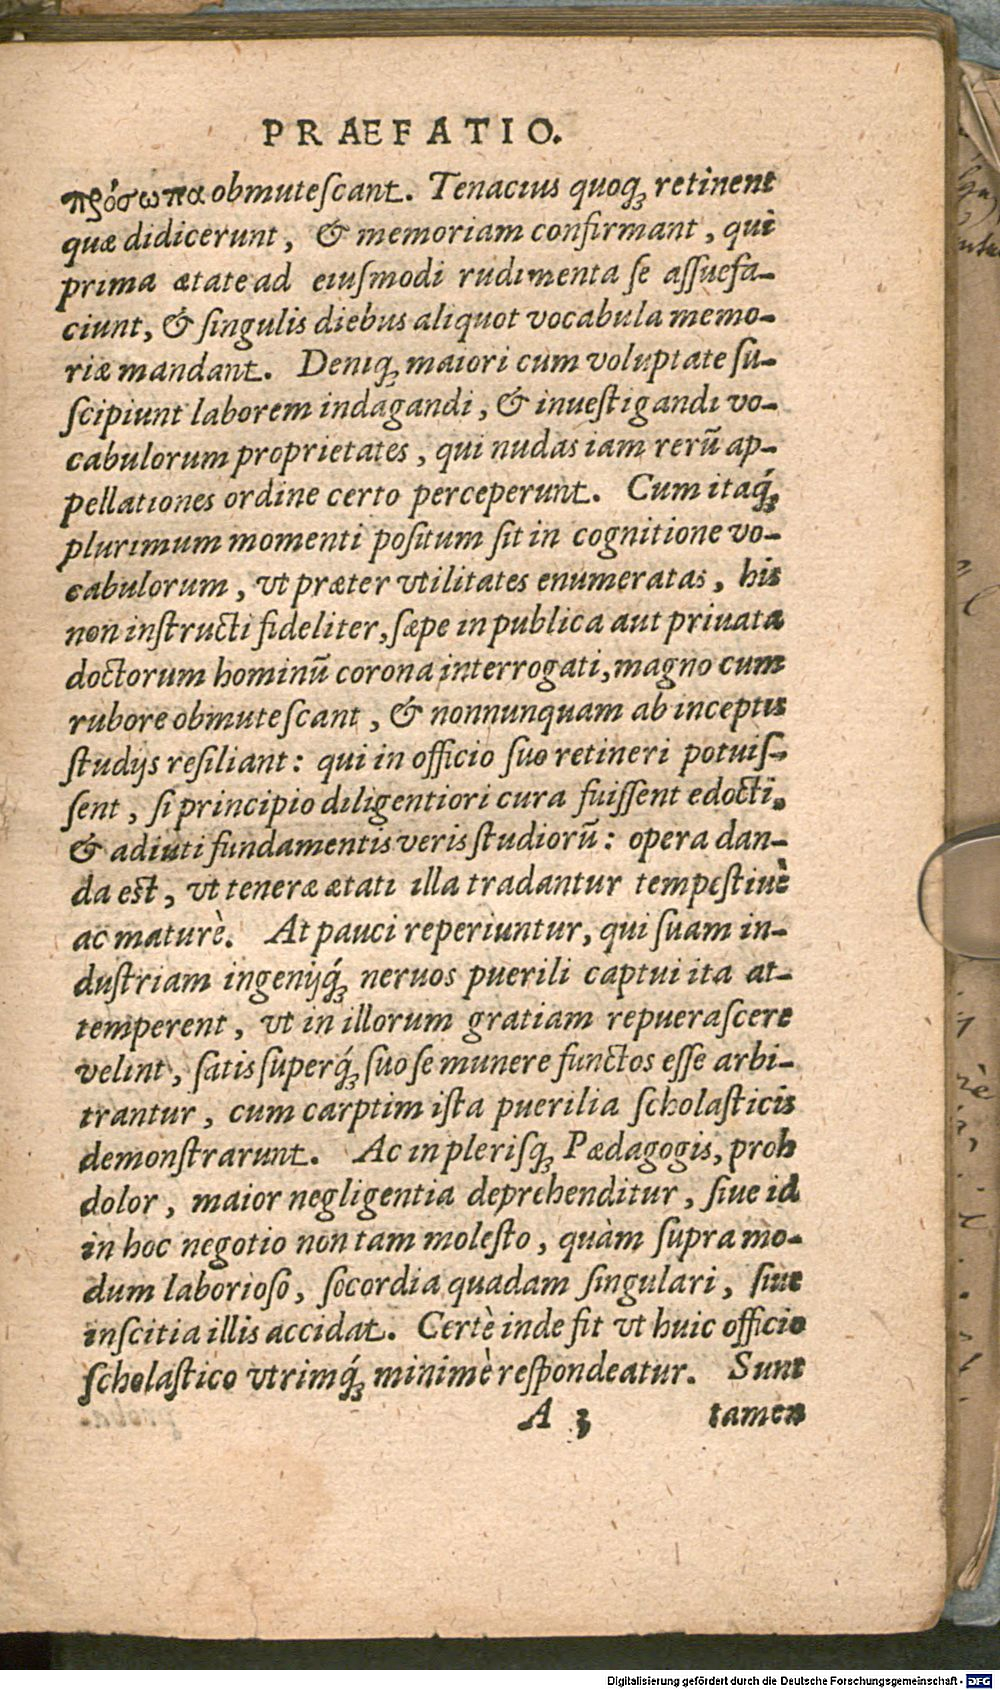 PRAEFATIO.
πρόσωπα obmuteſcant. Tenacius quoq; retinent
quæ didicerunt, & memoriam confirmant, qui
prima ætate ad eiuſmodi rudimenta ſe aſſuefa-
ciunt, & ſingulis diebus aliquot vocabula memo-
riæ mandant. Deniq; maiori cum voluptate ſu-
ſcipiunt laborem indagandi, & inueſtigandi vo-
cabulorum proprietates, qui nudas iam rerū ap-
pellationes ordine certo perceperunt. Cum itaq́;
plurimum momenti poſitum ſit in cognitione vo-
cabulorum, vt præter vtilitates enumeratas, his
non inſtructi fideliter, ſæpe in publica aut priuata
doctorum hominū corona interrogati, magno cum
rubore obmuteſcant, & nonnunquam ab inceptis
ſtudijs reſiliant: qui in officio ſuo retineri potuiſ-
ſent, ſi principio diligentiori cura fuiſſent edocti,
& adiuti fundamentis veris ſtudiorū: opera dan-
da eſt, vt teneræ ætati illa tradantur tempeſtiuè
ac maturè. At pauci reperiuntur, qui ſuam in-
duſtriam ingenijq́; neruos puerili captui ita at-
temperent, vt in illorum gratiam repueraſcere
velint, ſatis ſuperq́; ſuo ſe munere functos eſſe arbi-
trantur, cum carptim iſta puerilia ſcholaſticis
demonſtrarunt. Ac in pleriſq; Pædagogis, proh
dolor, maior negligentia deprehenditur, ſiue id
in hoc negotio non tam moleſto, quàm ſupra mo-
dum laborioſo, ſocordia quadam ſingulari, ſiue
inſcitia illis accidat. Certè inde fit vt huic officio
ſcholaſtico vtrimq́; minimè reſpondeatur. Sunt
A 3 tamen
Digitalisierung gefördert durch die Deutsche Forschungsgemeinschaft - DFG